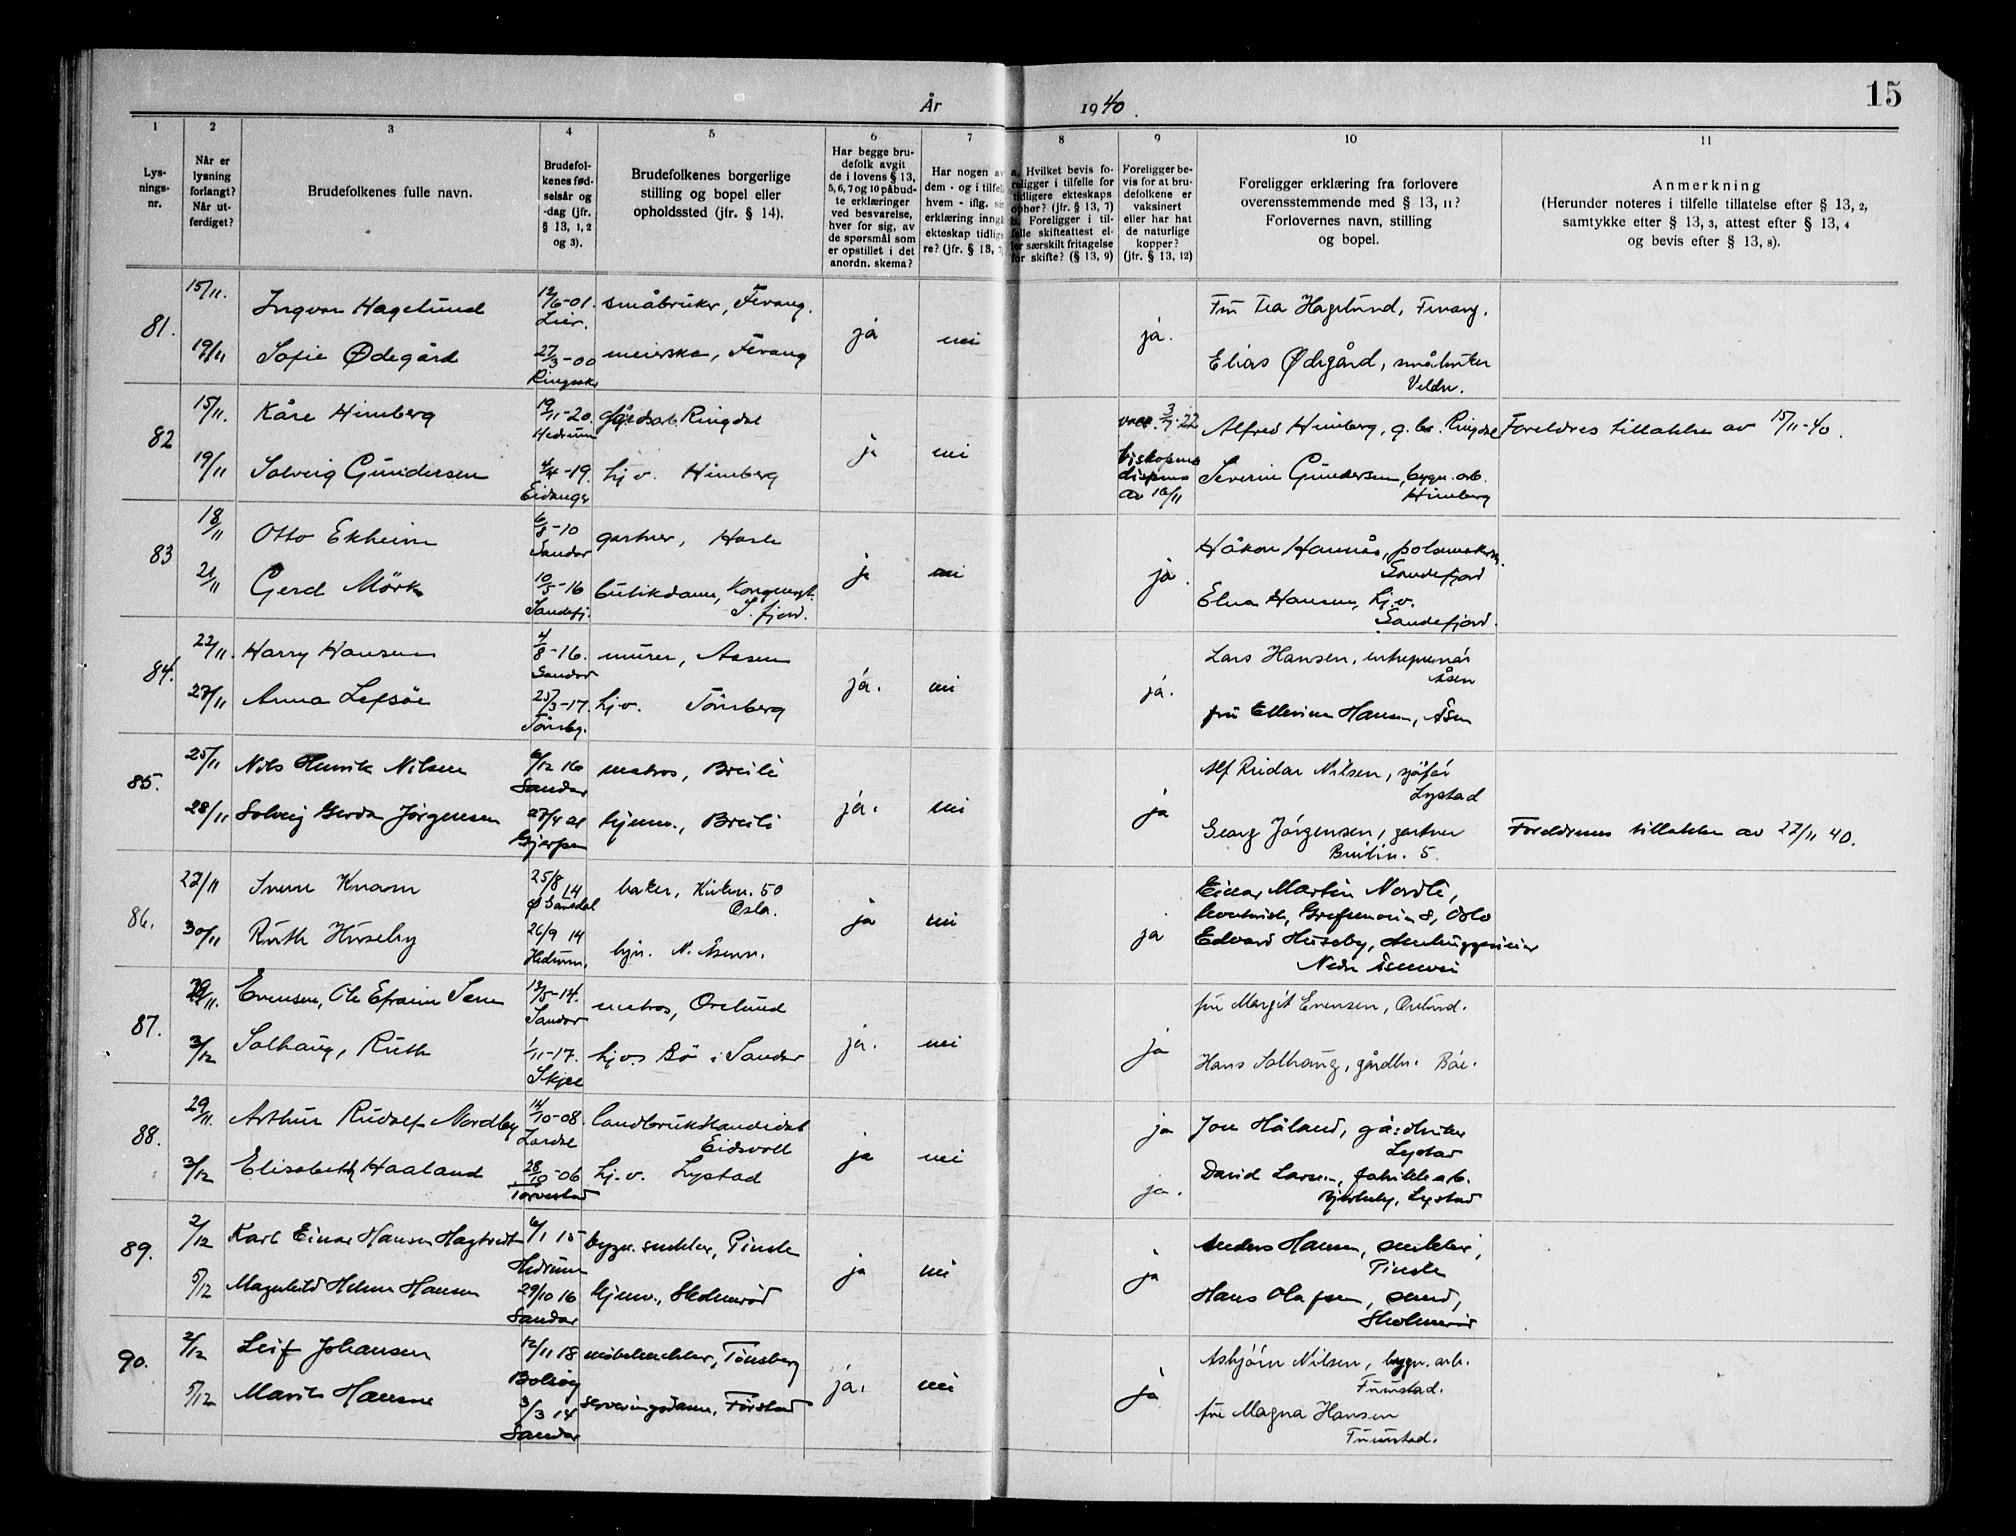 År 1940.
15
1 2 3 4 5 6 7 8 9 10 11
Lys-
nings-
nr.
Når er
lysning
forlangt?
Når ut-
ferdiget?
Brudefolkenes fulle navn.
Brudefol-
kenes fød-
selsår og
-dag (jfr.
§ 13, 1, 2
og 3).
Brudefolkenes borgerlige
stilling og bopel eller
opholdssted (jfr. § 14).
Har begge bru-
defolk avgit
de i lovens § 13,
5, 6, 7 og 10 påbud-
te erklæringer
ved besvarelse,
hver for sig, av
de spørsmål som
er opstillet i det
anordn. skema?
Har nogen av
dem - og i tilfelle
hvem - iflg. sin
erklæring inngå
ekteskap tidlige-
re? (jfr. § 13,
a. Hvilket bevis fo-
religger i tilfelle for
tidligere ekteskaps
ophør? (jfr. § 13, 7)
b. Foreligger i til-
felle skifteattest el-
ler særskilt fritagelse
for skifte? (§ 13, 9)
Foreligger be-
vis for at bru-
defolkene er
vaksinert
eller har hat
de naturlige
kopper?
(jfr. § 13, 12)
Foreligger erklæring fra forlovere
overensstemmende med § 13, 11?
Forlovernes navn, stilling
og bopel.
Anmerkning
(Herunder noteres i tilfelle tillatelse efter § 13, 2,
samtykke efter § 13, 3, attest efter § 13, 4
og bevis efter § 13, 8).
81. 15/11. Ingvar Hagelund 12/6-01. småbruker, Fevang. ja nei ja. Fru Tea Hagelund, Fevang.
Lier.
19/11 Sofie Ødegård 27/3-00 meierske, Fevang Elias Ødegård, småbruker
Ringsaker Veldre.
82 15/11. Kåre Himberg 19/11-20. gårdsarb. Ringdal ja nei vacc. 3/7-22 Alfred Himberg, g.br. Ringdal Foreldres tillatelse av 15/11-40.
Hedrum
19/11 Solveig Gundersen 4/4-19. hj.v. Himberg biskopens Severin Gundersen, bygn. arb.
Eidanger dispens Himberg
av 16/11
83 18/11 Otto Ekheim 6/8-10 gartner, Hasle ja nei ja. Håkon Hannås,
Sandar Sandefjord
21/11 Gerd Mörk 10/5-16 butikdame, Kongensgt. Elna Hansen, hj.v.
Sandefj. S.fjord. Sandefjord.
84. 22/11. Harry Hansen 4/8-16. murer, Aasen ja. nei ja. Lars Hansen, entreprenör
Sandar Åsen
27/11 Anna Lefsöe 25/3-17. hj.v. Tönsberg fru Ellevine Hansen, Åsen
Tönsbg.
85. 25/11 Nils Henrik Nilsen 6/12 16 matros, Breili ja. nei ja Alf Reidar Nilsen, sjåför
Sandar Lystad
28/11 Solveig Gerda Jörgensen 27/4 21 hjemv., Breili Georg Jörgensen, gartner Foreldrenes tillatelse av 27/11 40.
Gjerpen Breiliv. 5.
86. 27/11 Svein Knaom 25/8 14 baker, Kirkev. 50 ja nei ja Einar Martin Nordli,
Oslo. Grefsenveien 8, Oslo
30/11 Ruth Huseby 26/9 14 hjv. N. Åsenv. Edvard Huseby,
Hedrum. Nedre Åsenvei
87. 29/11. Evensen, Ole Efraim Sem 13/5-14. matros, Ørelund ja. nei ja fru Margit Evensen, Ørelund.
Sandar
3/12 Solhaug, Ruth 1/11-17. hjv. Bö i Sandar Hans Solhaug, gårdbr. Böe.
Skjee
88. 29/11. Arthur Rudolf Nordby 14/10-08. landbrukskandidat ja nei ja Jon Håland, gårdbruker
Lardal Eidsvoll Lystad
3/12 Elisabeth Haaland 28/10-06 hj.v. Lystad ja. David Larsen, fabrikkarb.
Torvestad Bjerkely, Lystad
89. 2/12 Karl Einar Hansen Hagtvedt 6/1 15 bygn. snekker, Pinsle ja nei ja Anders Hansen, snekker,
Hedrum Pinsle
5/12 Magnhild Helene Hansen 29/10 16 hjemv., Skolmerød Hans Olafsen, smed,
Sandar Skolmerød
90. 2/12 Leif Johansen 12/11 18 möbelsnekker, Tönsberg ja. nei ja Asbjörn Nilsen, bygn. arb.
Bolsöy Furustad.
5/12 Marit Hansen 3/3 14 serveringsdame, Furustad fru Magna Hansen
Sandar Furustad.